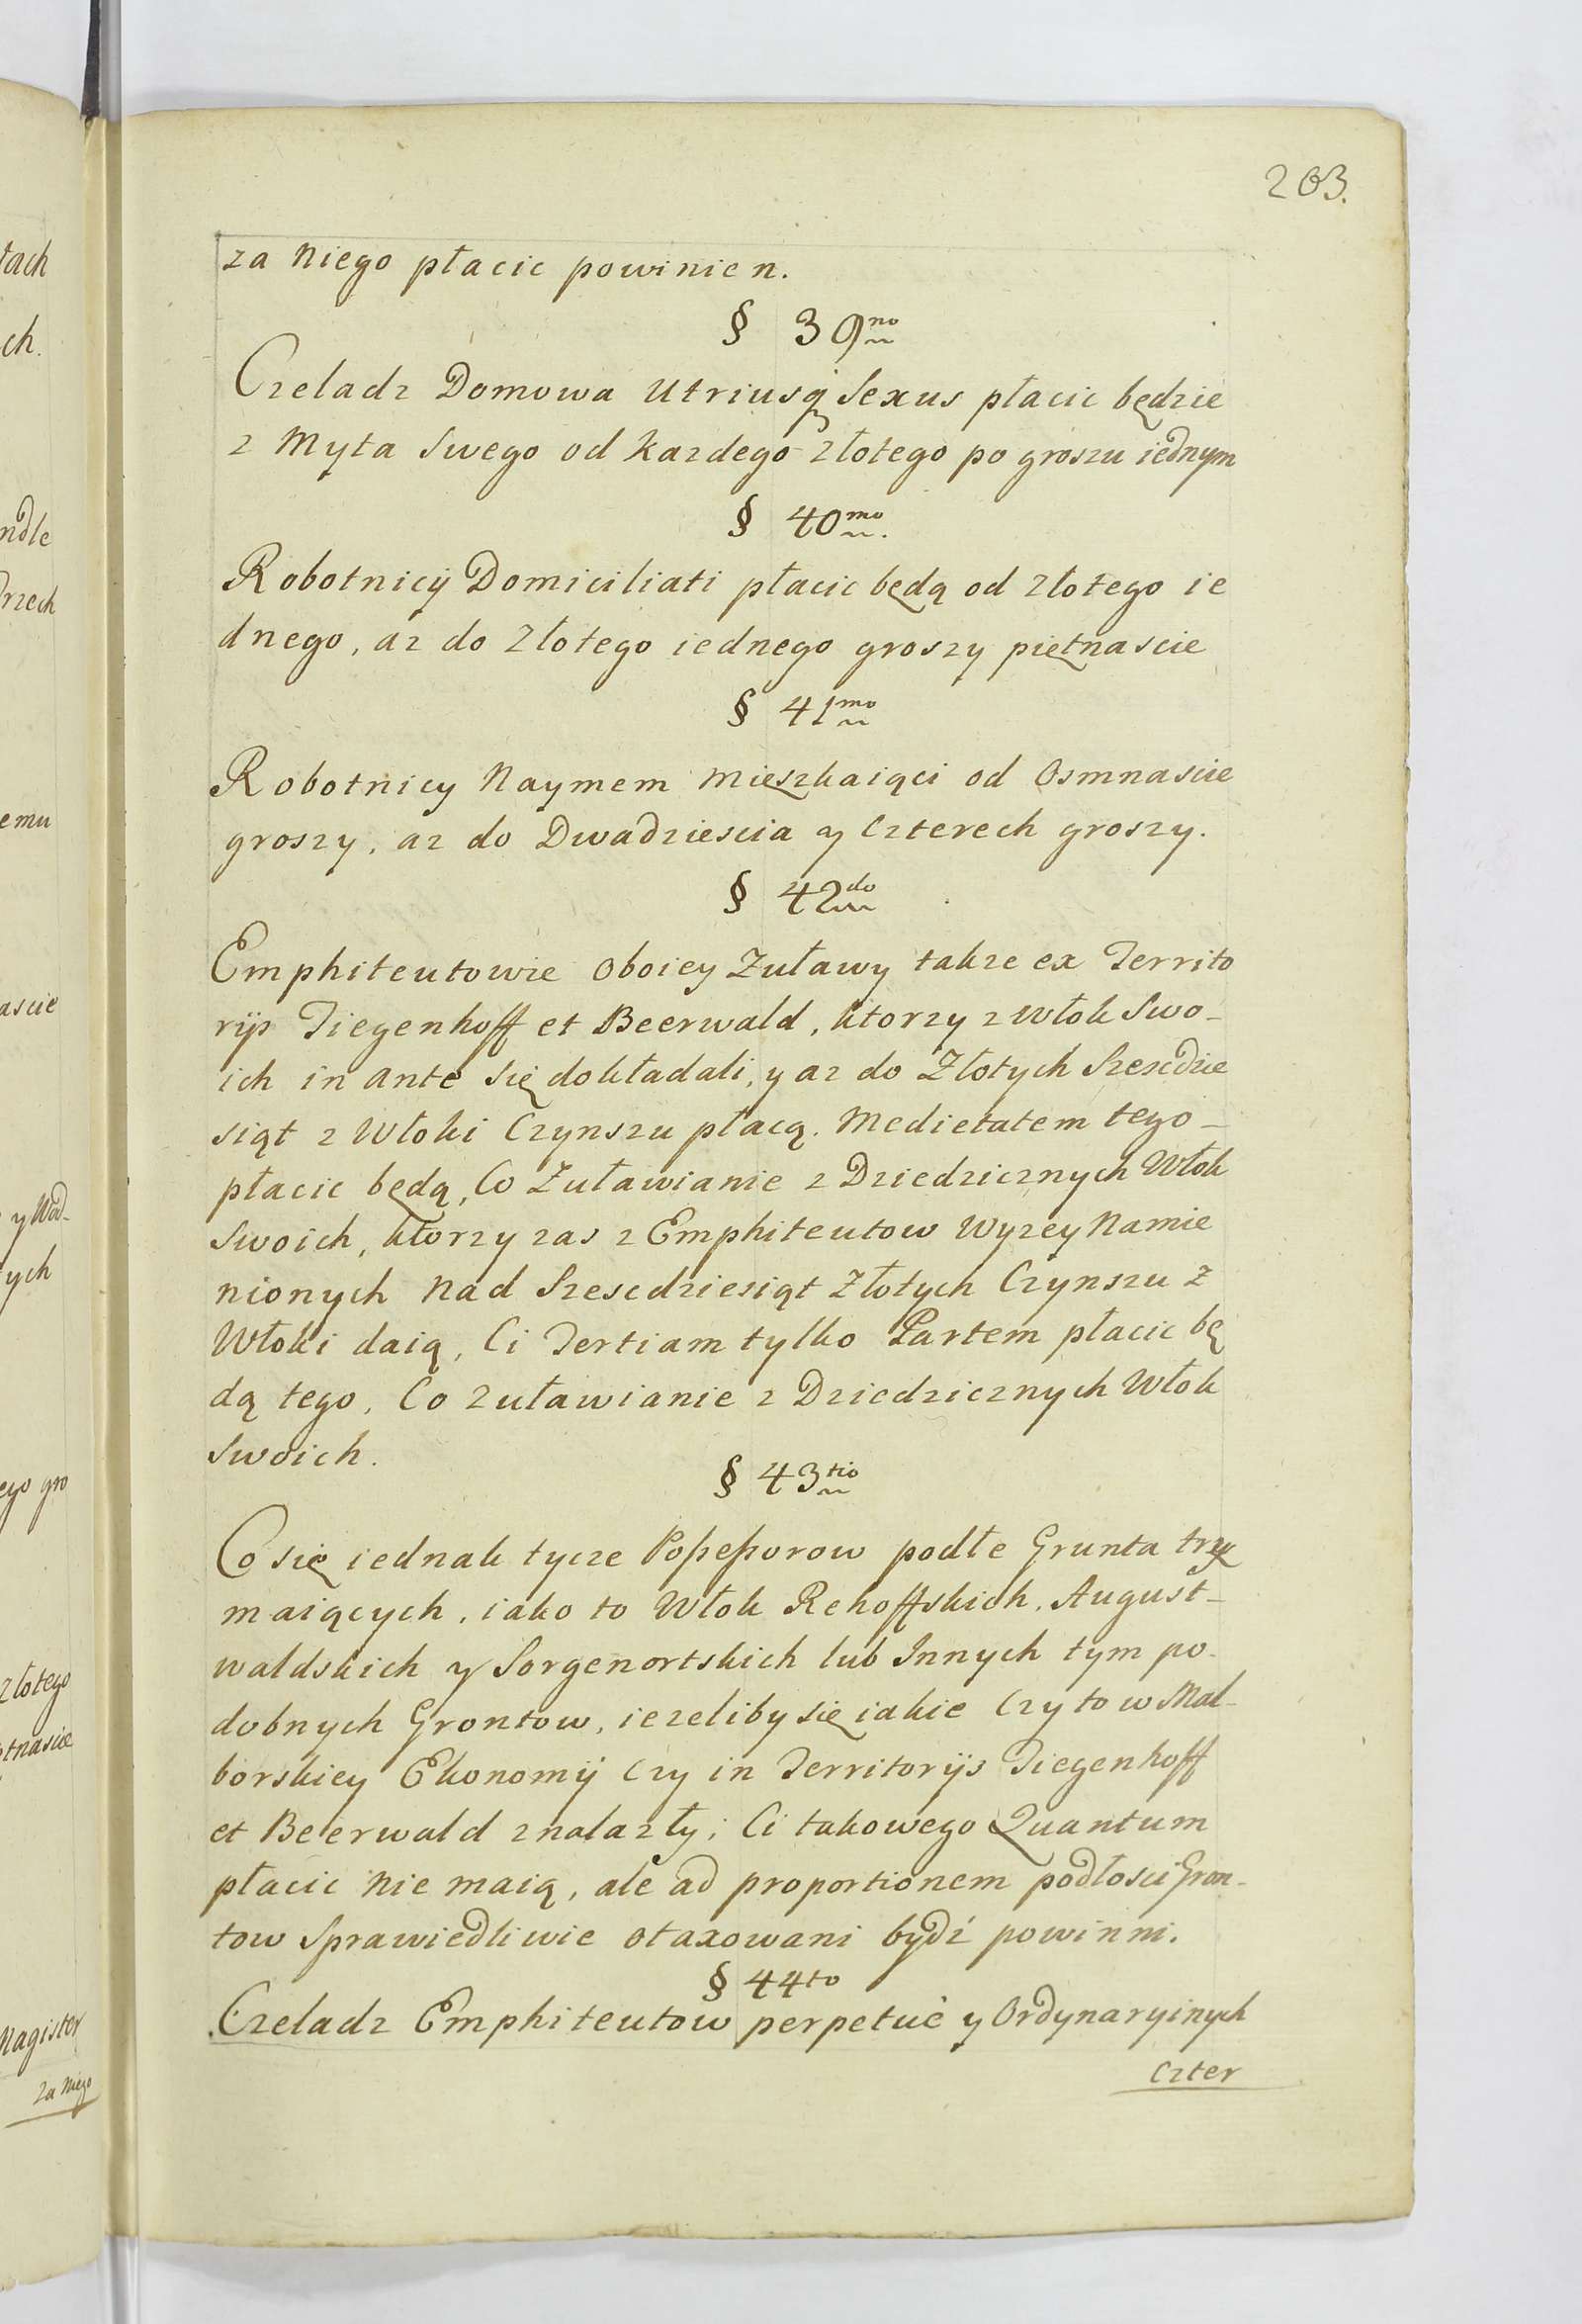 203.
za Niego płacic powinien.
§ 39no
Czeladz Domowa Utriusq Sexus płacic będzie
z Myta Swego od kazdego złotego po groszu iednym
§ 40mo.
Robotnicÿ Domiciliati płacic będą od złotego ie
dnego, az do Złotego iednego groszy piętnascie
§ 41mo
Robotnicy Naymem mieszkaiąci od Osmnascie
groszy, az do Dwadziescia y Czterech groszy.
§ 42do
Emphiteutowie oboiey Zuławy takze ex Territo
rijs Tiegenhoff et Beerwald, ktorzy z Włok Swo-
ich in ante się dokładali, y az do Złotych Szescdzie
siąt z Włoki Czynszu płacą. Medietatem tego-
płacic będą, Co Zuławianie z Dziedzicznych Włok
Swoich, ktorzy zas z Emphiteutow Wyzey Namie
nionych Nad Szescdziesiąt Złotych Czynszu z
Włoki daią, Ci Tertiam tylko Partem płacic bę
dą tego, Co Zuławianie z Dziedzicznych Włok
Swoich.
§ 43tio
Co się iednak tycze Possessorow podłe Grunta trzy
maiących, iako to Włok Rehoffskich, August-
waldskich y Sorgenortskich lub Innych tym po-
dobnych Grontow, iezeliby się iakie Czy to w Mal-
borskiey Ekonomÿ Czy in Territorijs Tiegenhoff
et Beerwald znalazły; Ci takowego Quantum
płacic Nie maią, ale ad proportionem podłosci Gron-
tow Sprawiedliwie otaxowani bydź powinni.
§ 44to
Czeladz Emphiteutow perpetuè y Ordynaryinych
Czter
tach
ch.
ndle
drzech
emu
ascie
y Wod-
ych
ego gro
złotego
tnascie
Magister
Za Niego